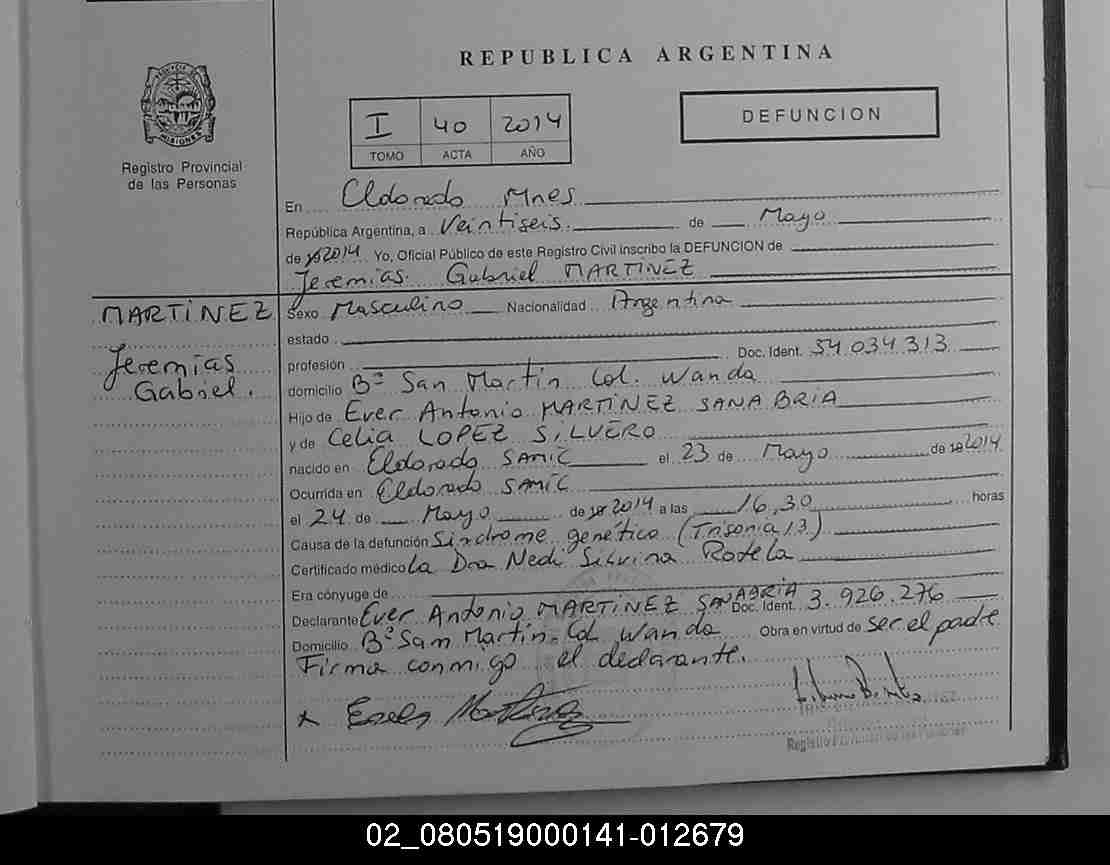 REPUBLICA ARGENTINA
PROVINCIA DE MISIONES
Registro Provincial
de las Personas
I 40 2014
TOMO ACTA AÑO
DEFUNCION
En Eldorado Mnes
República Argentina, a Veintiseis de Mayo
de 2014 Yo, Oficial Público de este Registro Civil inscribo la DEFUNCION de
Jeremias Gabriel MARTINEZ
MARTINEZ
Jeremias
Gabriel.
Sexo Masculino Nacionalidad Argentina
estado
profesión Doc. Ident. 54.034.313
domicilio Bº San Martin Col. Wanda
Hijo de Ever Antonio MARTINEZ SANABRIA
y de Celia LOPEZ SILVERO
nacido en Eldorado SAMIC el 23 de Mayo de 19 2014
Ocurrida en Eldorado SAMIC
el 24 de Mayo de 19 2014 a las 16,30 horas
Causa de la defunción Sindrome genético (Trisomia 13)
Certificado médico la Dra Nedi Silvina Rotela
Era cónyuge de
Declarante Ever Antonio MARTINEZ SANABRIA Doc. Ident. 3.926.276
Domicilio Bº San Martin-Col Wanda Obra en virtud de ser el padre
Firma conmigo el declarante.
Registro Provincial de las Personas
02_080519000141-012679